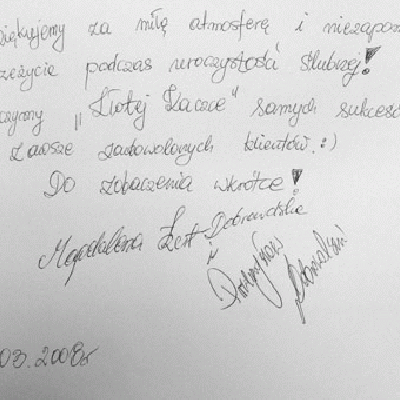 ziękujemy za miłą atmosferę i niezapom
zeżycie podczas uroczystości ślubnej!
czymy „Złotej Kaczce" samych sukcesó
zawsze zadowolonych klientów. :)
Do zobaczenia wkrótce!
Magdalena -Dobrowolska
i
Dobrowolski
03.2008r